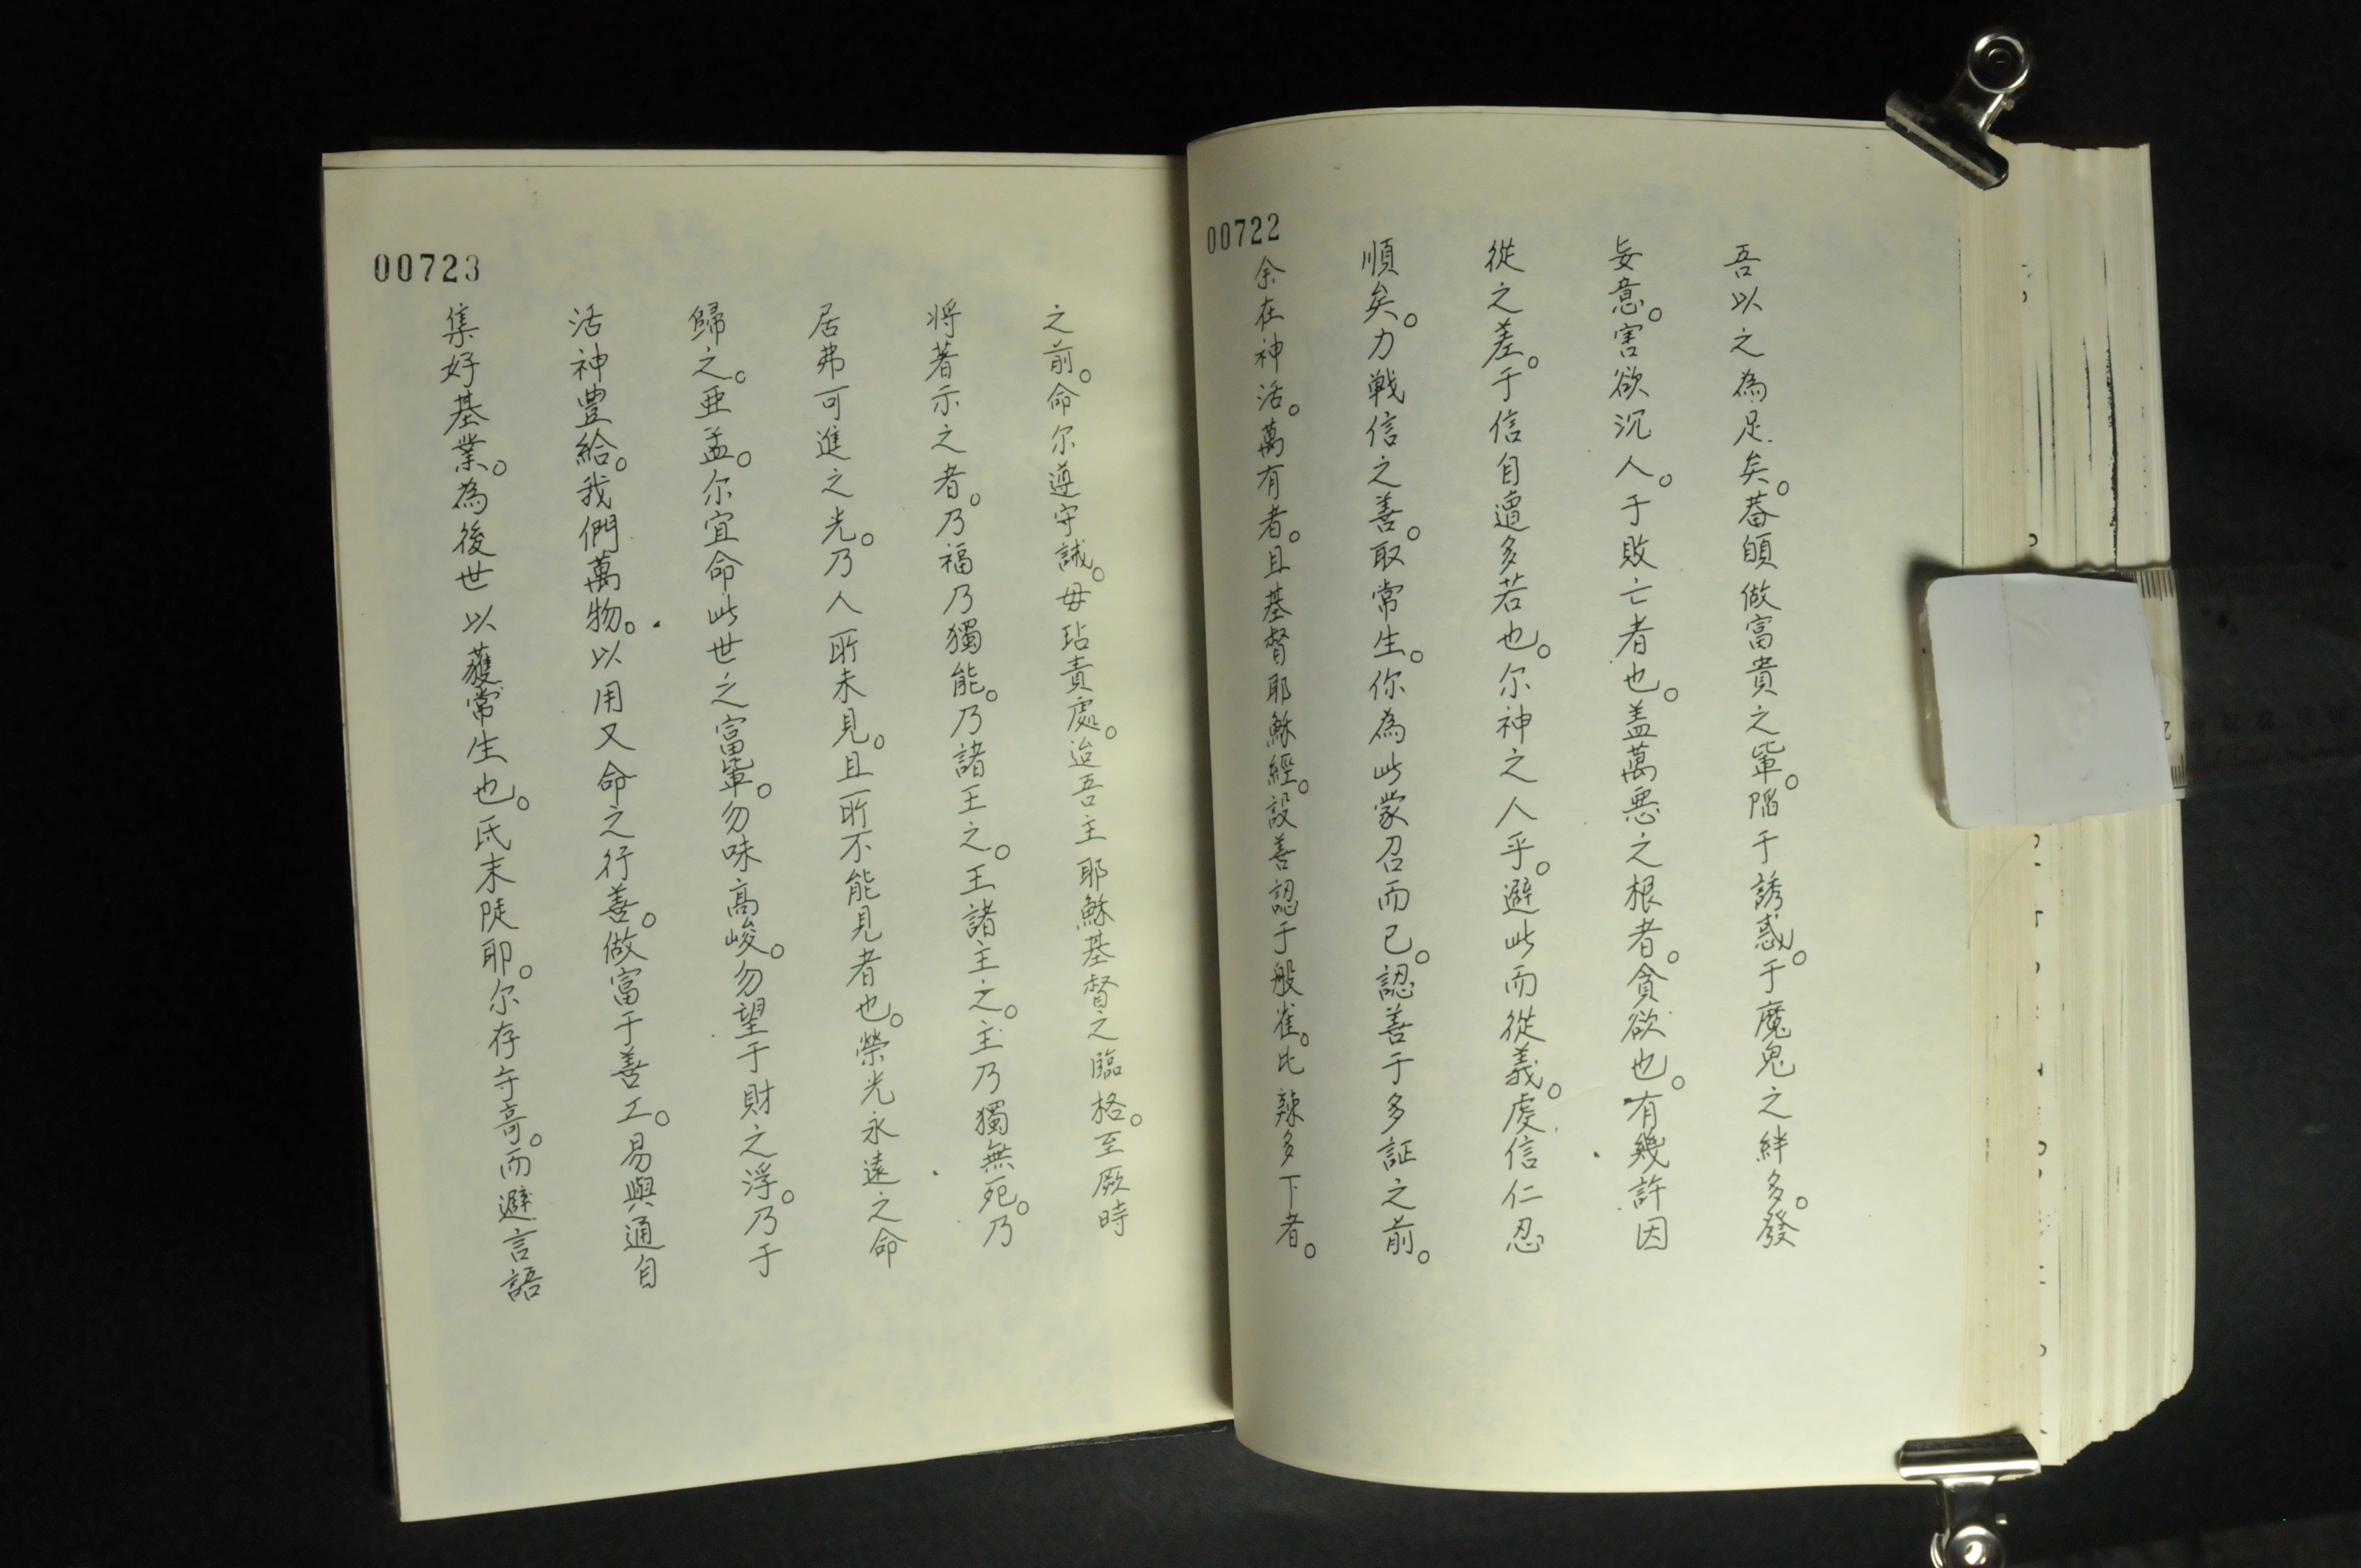 00722
吾以之為足矣。蓋頋做富貴之軰。陷于誘惑。于魔鬼之絆多。發
妄意。害欲沉人。于敗亡者也。盖萬悪之根者。貪欲也。有幾許因
從之差。于信自遭多若也。尔神之人乎。避此而從義。虔信仁忍
順矣。力戰信之善。取常生。你為此蒙召而已。認善于多証之前。
余在神活。萬有者。且基督耶穌經。設善認于般雀。比辣多下者。
00723
之前。命尔遵守誡。毋玷責處。迨吾主耶穌基督之臨格。至厥時
将著示之者。乃福乃獨能。乃諸王之。王諸主之。主乃獨無死。乃
居弗可進之光。乃人所未見。且所不能見者也。榮光永遠之命
歸之。亜孟。尔宜命此世之富軰。勿味高峻。勿望于財之浮。乃于
活神豊給。我們萬物。以用又命之行善。做富于善工。易與通自
集好基業。為後世以獲常生也。氐末陡耶。尔存守哥。而避言語